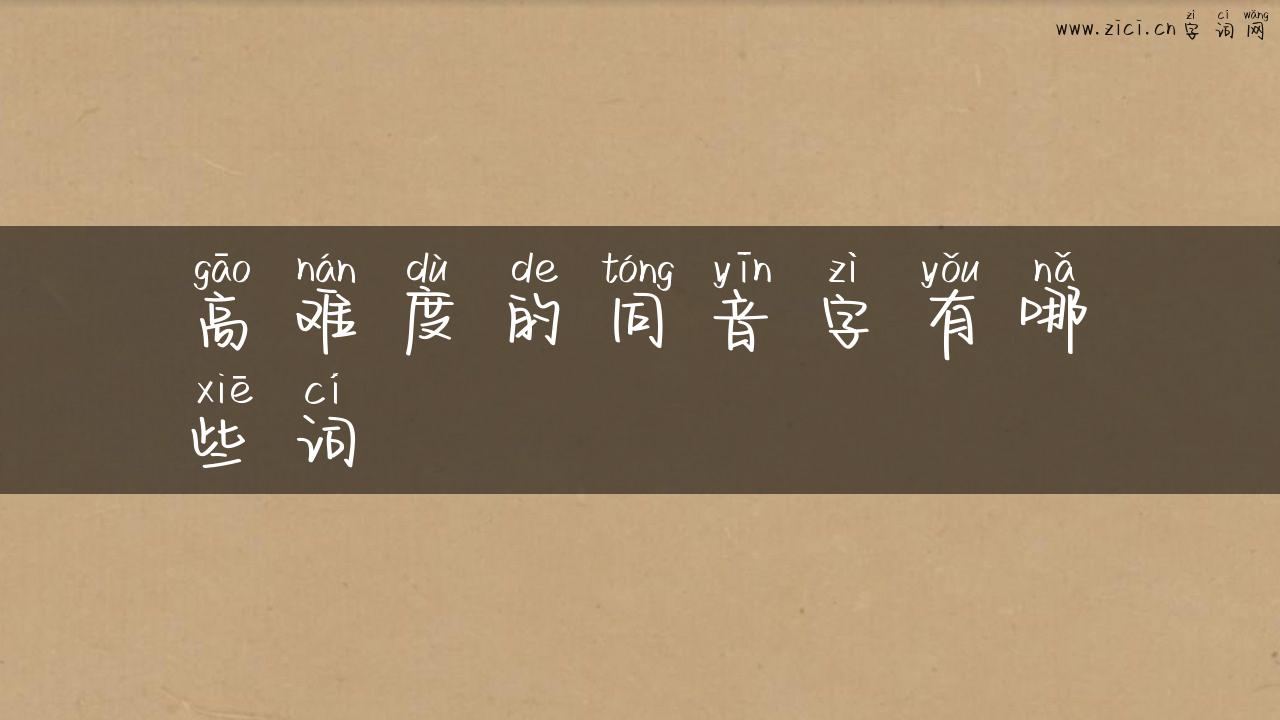 zì cí wǎng
www.zici.cn 字词网
gāo nán dù de tóng yīn zì yǒu nǎ
高难度的同音字有哪
xiē cí
些词